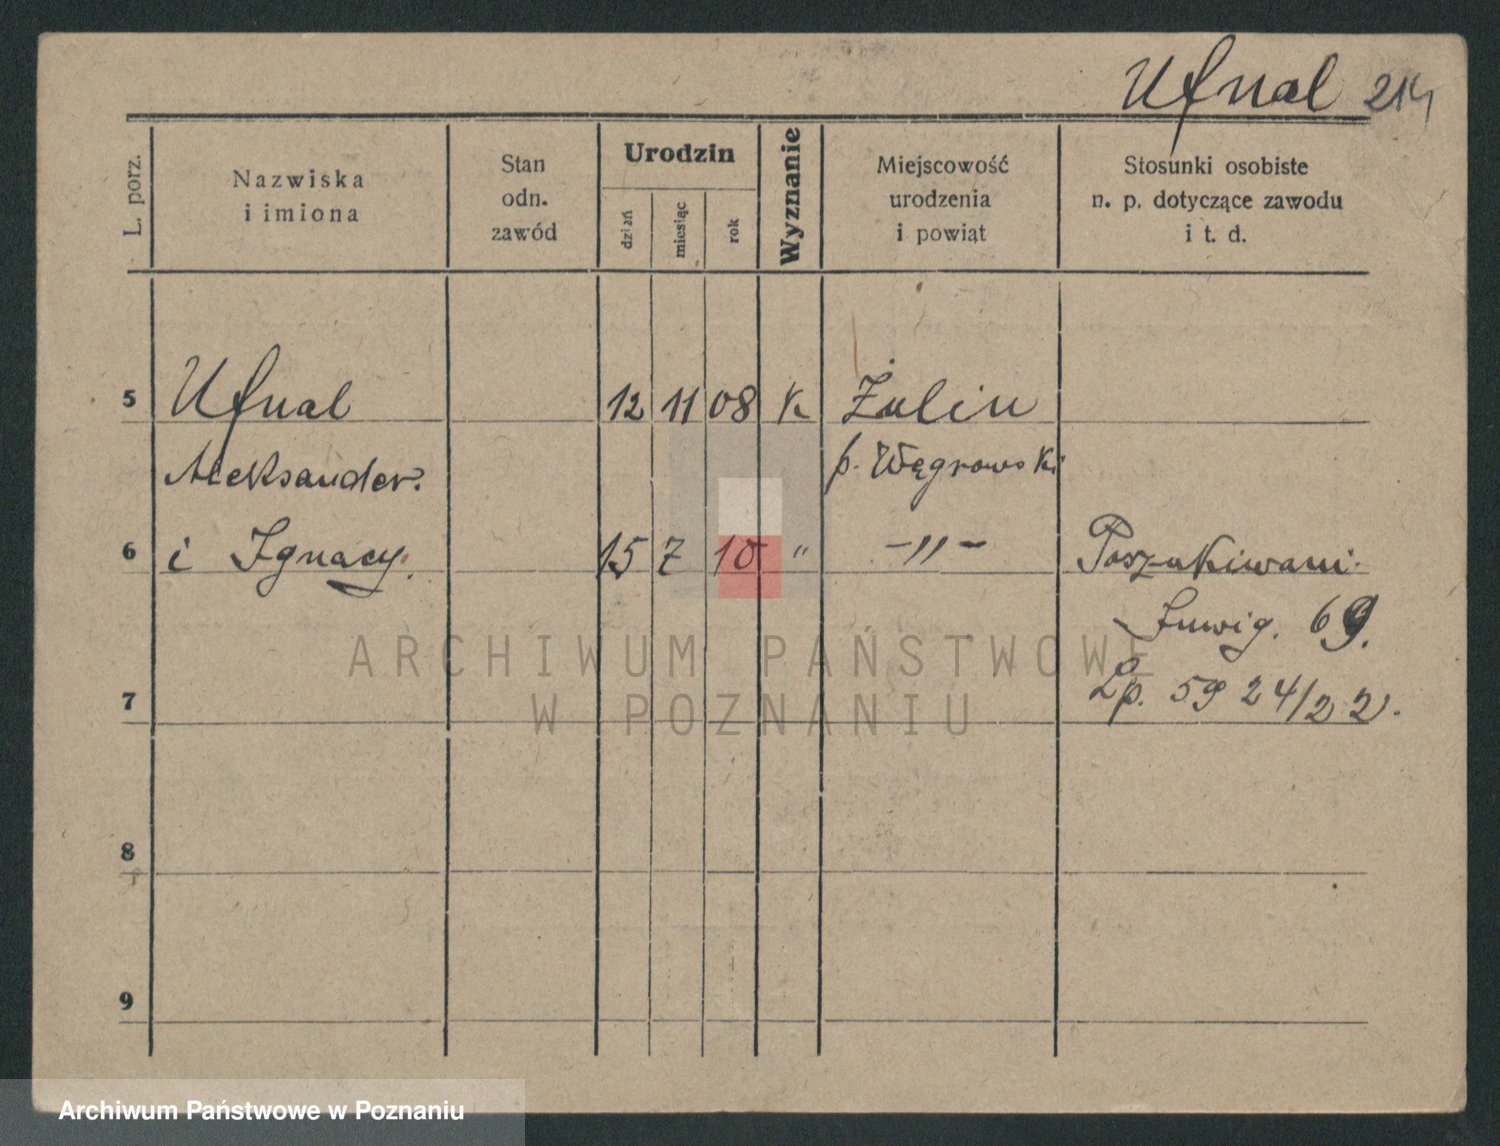 Ufnal 214
L. porz.
Nazwiska
i imiona
Stan
odn.
zawód
Urodzin
dzień
miesiąc
rok
Wyznanie
Miejscowość
urodzenia
i powiąt
Stosunki osobiste
n. p. dotyczące zawodu
i t. d.
5 Ufnal 12 11 08 K Żulin
Aleksander. p. Węgrowski
6 i Ignacy. 15 7 10 " -"- Poszukiwani.
69.
7 Lp. 5924/22.
8
9
ARCHIWUM PAŃSTWOWE
W POZNANIU
Archiwum Państwowe w Poznaniu